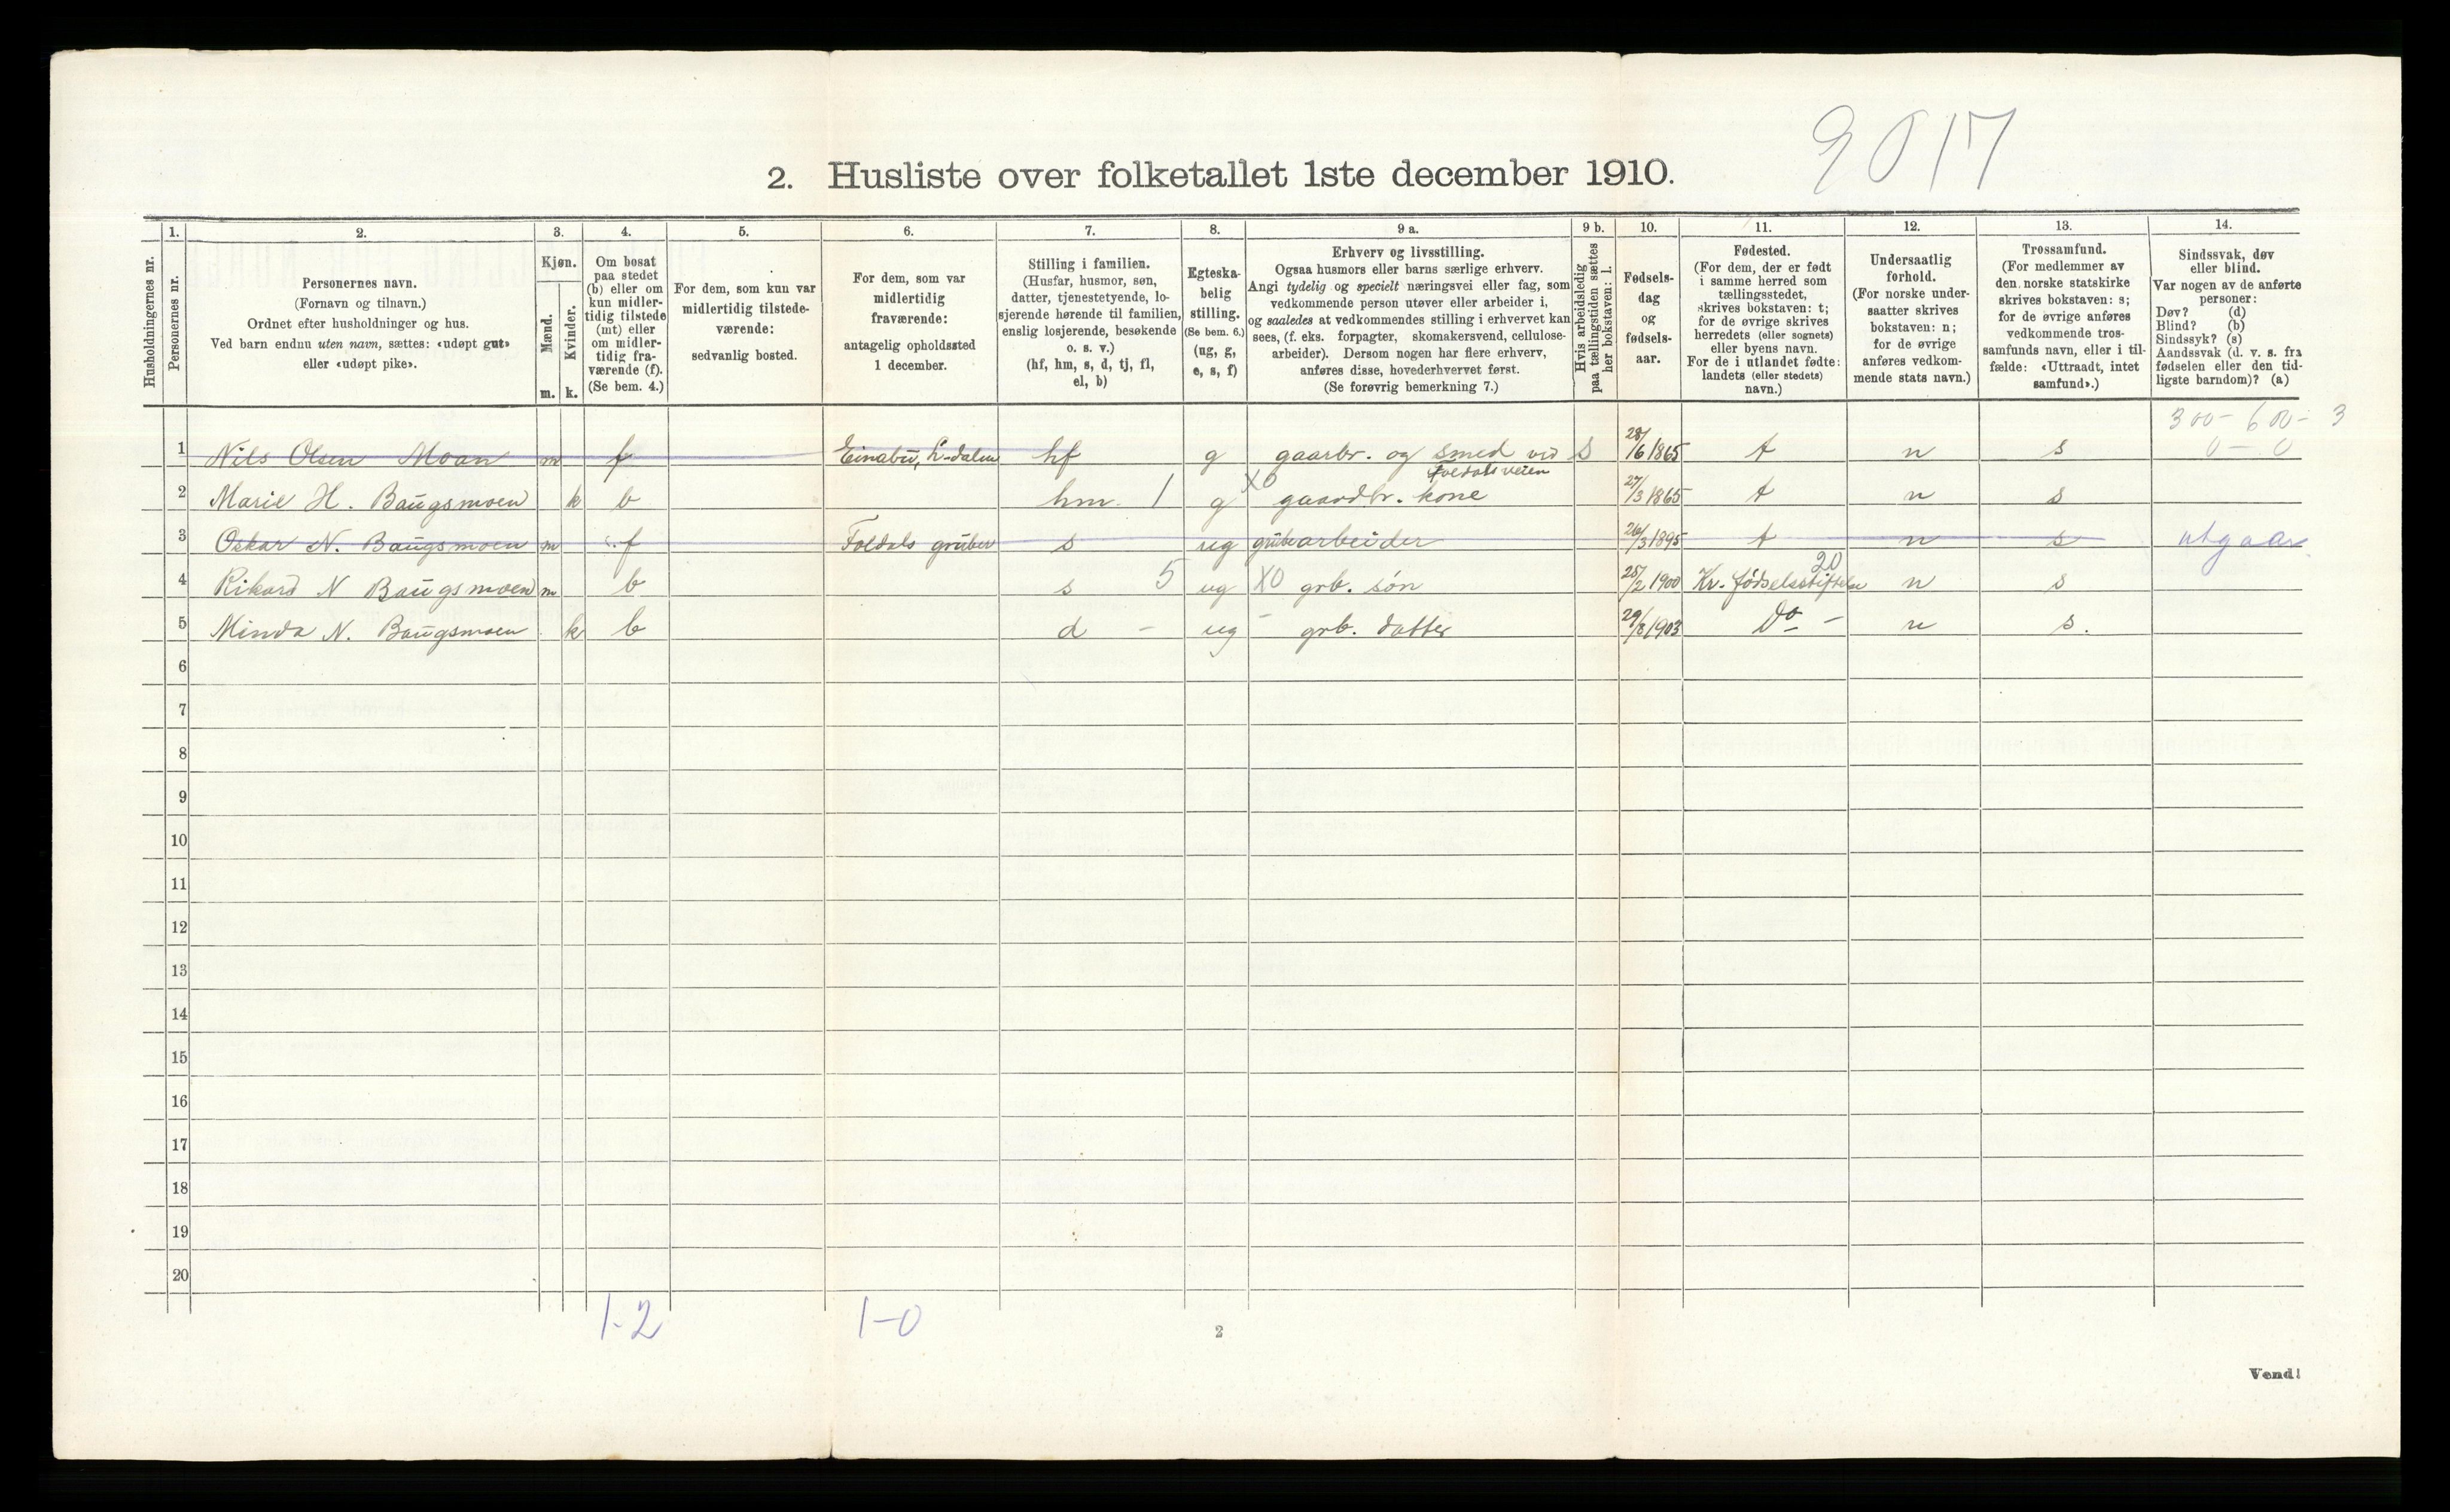 2017
2. Husliste over folketallet 1ste december 1910.
Husholdningernes nr.
1.
Personernes nr.
2.
Personernes navn.
(Fornavn og tilnavn.)
Ordnet efter husholdninger og hus.
Ved barn endnu uten navn, sættes: «udøpt gut»
eller «udøpt pike».
3.
Kjøn.
Mænd.
m.
Kvinder.
k.
4.
Om bosat
paa stedet
(b) eller om
kun midler-
tidig tilstede
(mt) eller
om midler-
tidig fra-
værende (f).
(Se bem. 4.)
5.
For dem, som kun var
midlertidig tilstede-
værende:
sedvanlig bosted.
6.
For dem, som var
midlertidig
fraværende:
antagelig opholdssted
1 december.
7.
Stilling i familien.
(Husfar, husmor, søn,
datter, tjenestetyende, lo-
sjerende hørende til familien,
enslig losjerende, besøkende
o. s. v.)
(hf, hm, s, d, tj, fl,
el, b)
8.
Egteska-
belig
stilling.
(Se bem. 6.)
(ug, g,
e, s, f)
9 a.
Erhverv og livsstilling.
Ogsaa husmors eller barns særlige erhverv.
Angi tydelig og specielt næringsvei eller fag, som
vedkommende person utøver eller arbeider i,
og saaledes at vedkommendes stilling i erhvervet kan
sees, (f. eks. forpagter, skomakersvend, cellulose-
arbeider). Dersom nogen har flere erhverv,
anføres disse, hovederhvervet først.
(Se forøvrig bemerkning 7.)
9 b.
Hvis arbeidsledig
paa tællingstiden sættes
her bokstaven: l.
10.
Fødsels-
dag
og
fødsels-
aar.
11.
Fødested.
(For dem, der er født
i samme herred som
tællingsstedet,
skrives bokstaven: t;
for de øvrige skrives
herredets (eller sognets)
eller byens navn.
For de i utlandet fødte:
landets (eller stedets)
navn.)
12.
Undersaatlig
forhold.
(For norske under-
saatter skrives
bokstaven: n;
for de øvrige
anføres vedkom-
mende stats navn.)
13.
Trossamfund.
(For medlemmer av
den norske statskirke
skrives bokstaven: s;
for de øvrige anføres
vedkommende tros-
samfunds navn, eller i til-
fælde: «Uttraadt, intet
samfund».)
14.
Sindssvak, døv
eller blind.
Var nogen av de anførte
personer:
Døv? (d)
Blind? (b)
Sindssyk? (s)
Aandssvak (d. v. s. fra
fødselen eller den tid-
ligste barndom)? (a)
300 - 600 - 3
1 Nils Olsen Moan m f Einabu, L-dalen hf g gaarbr. og smed ved s 28/6 1865 t n s 0 - 0
Foldalsveien
2 Marie H. Baugsmoen k b hm. 1 g X0 gaardbr. kone 27/3 1865 t n s
3 Oskar N. Baugsmoen m f Foldals gruber s ug grubearbeider 26/3 1895 t n s utgaar
20
4 Rikard N Baugsmoen m b s 5 ug X0 grb. søn 25/2 1900 Kr. fødselsstiftelse n s
5 Minda N. Baugsmoen k b d - ug - grb. datter 29/8 1903 Do - n s.
6
7
8
9
10
11
12
13
14
15
16
17
18
19
20
1-2 1-0
2
Vend!